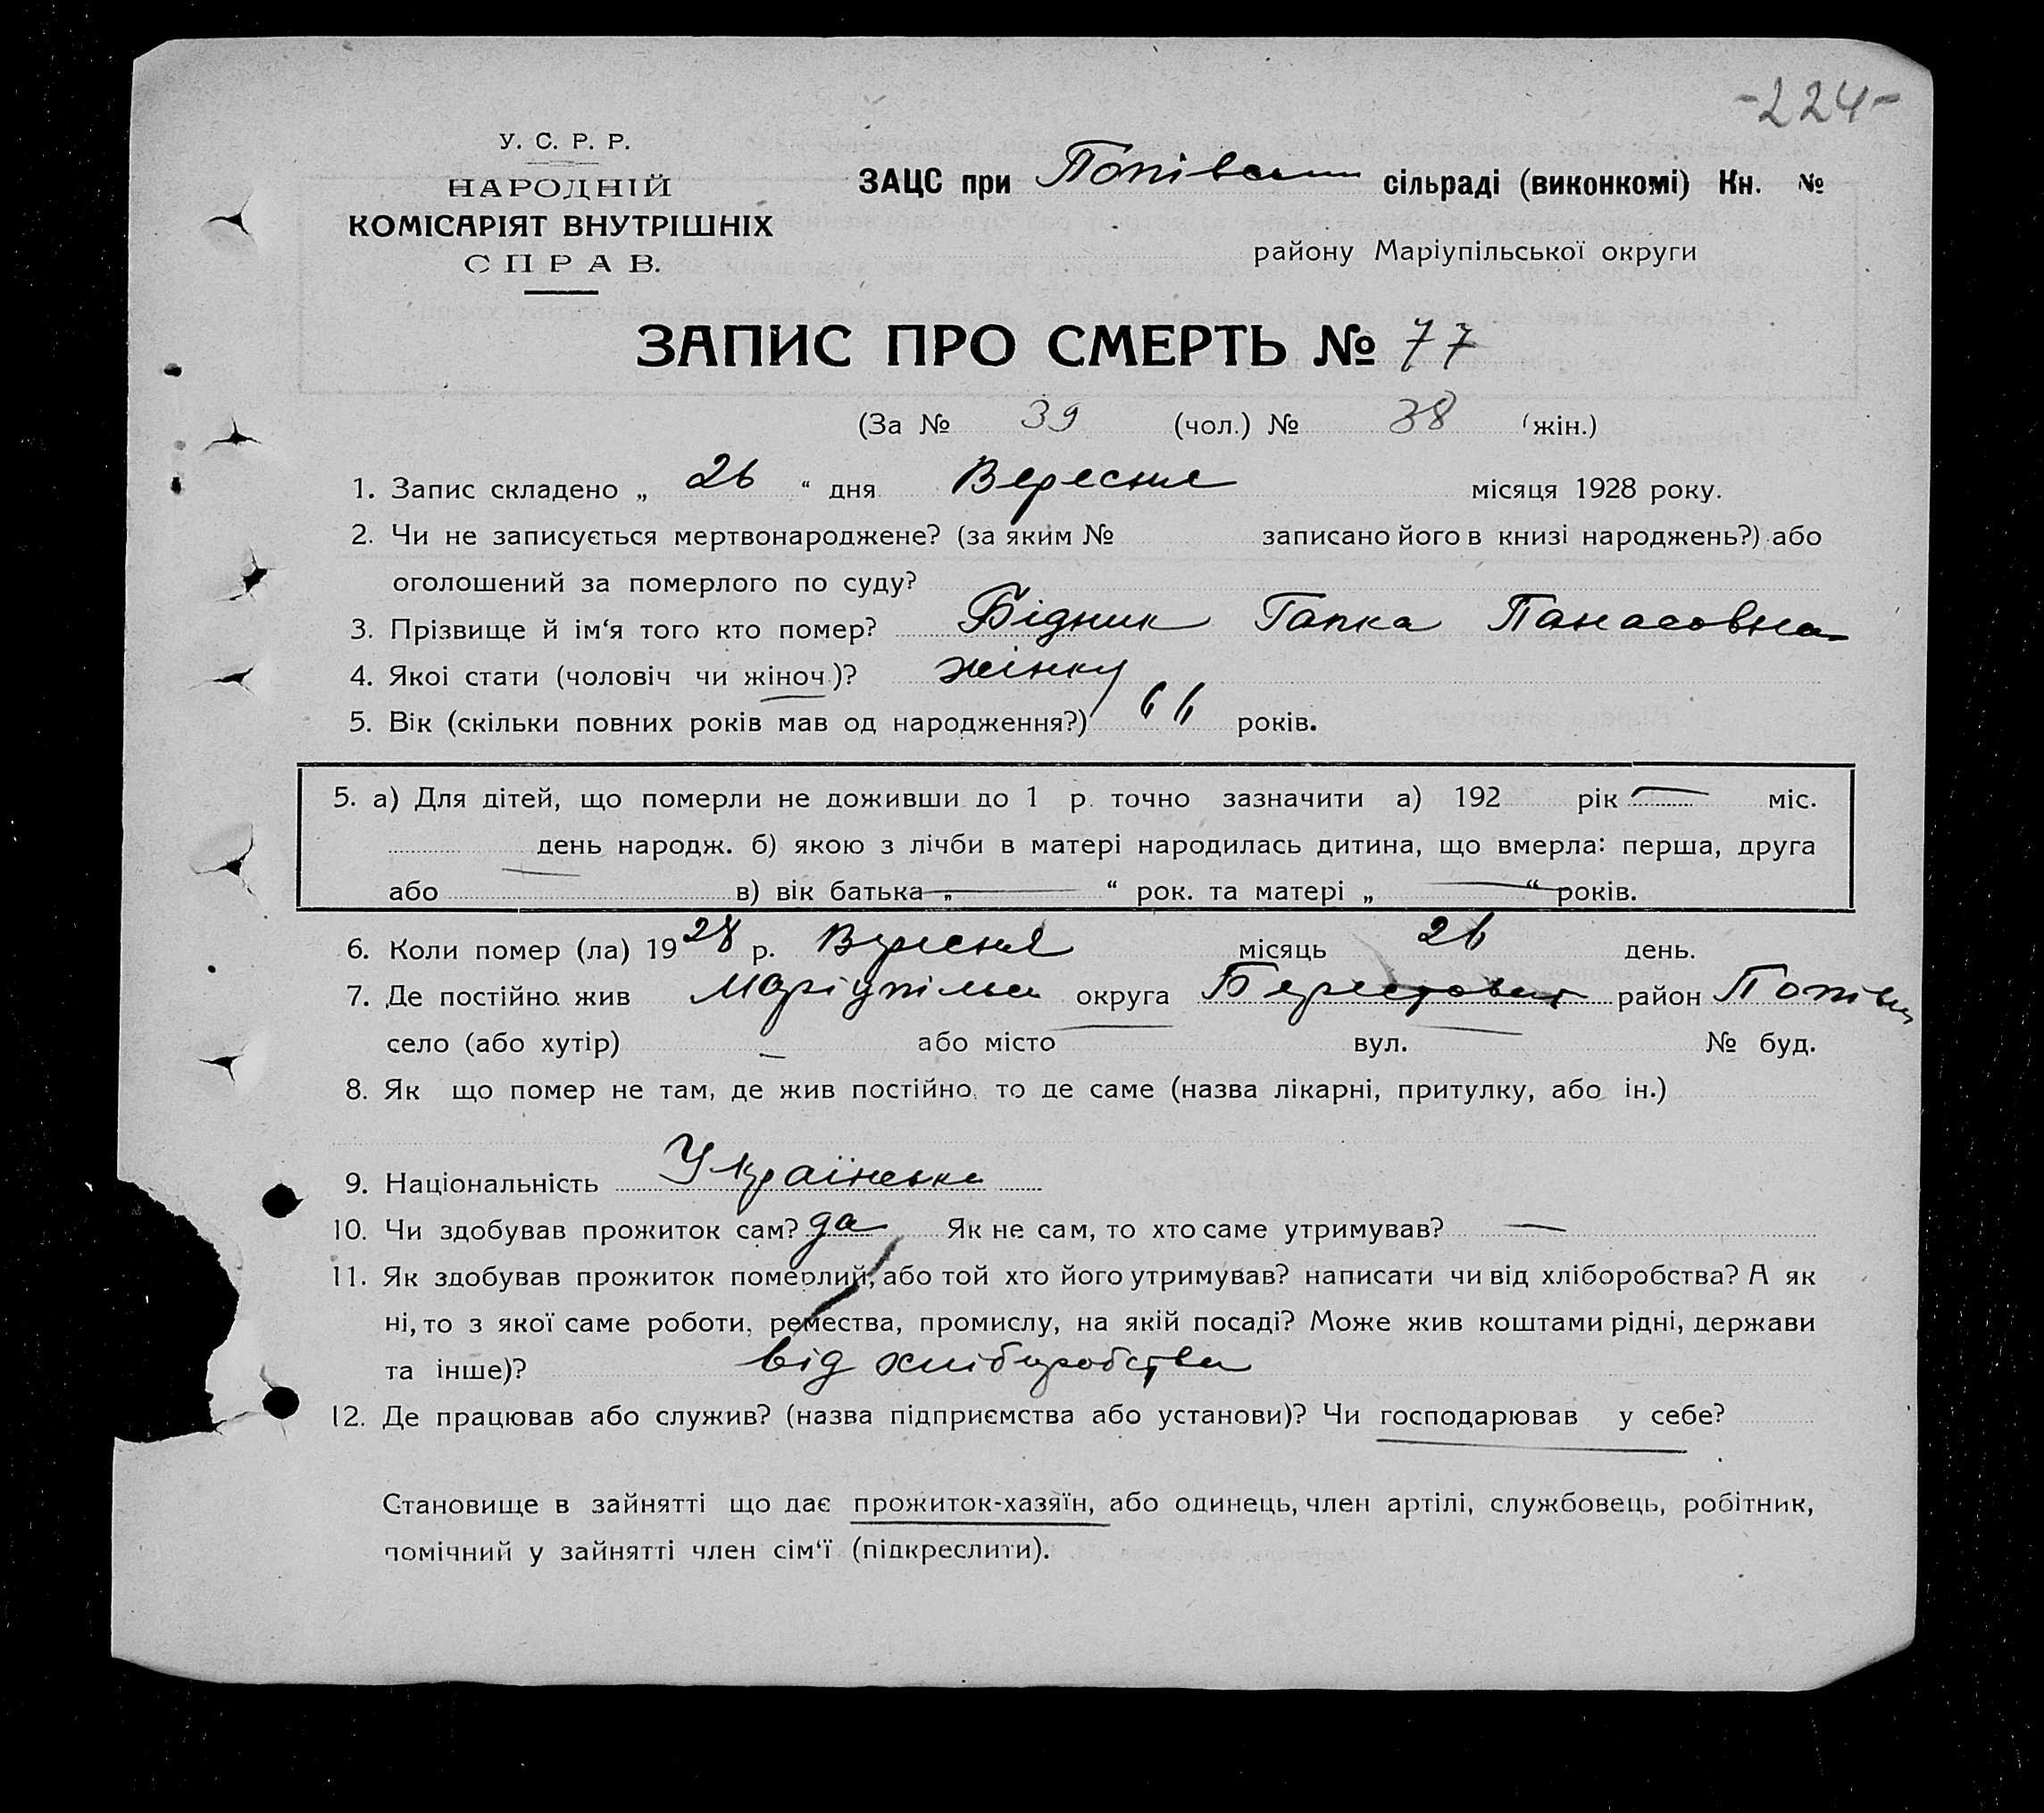 -224-
У. С. Р. Р.
НАРОДНІЙ
КОМІСАРІЯТ ВНУТРІШНІХ
СПРАВ.
ЗАЦС при сільраді (виконкомі) Кн. №
району Маріупільської округи
ЗАПИС ПРО СМЕРТЬ № 77
(За № 39 (чол.) № 38 (жін.)
1. Запис складено „ 26 “ дня Вересня місяця 1928 року.
2. Чи не записується мертвонароджене? (за яким № записано його в книзі народжень?) або
оголошений за померлого по суду?
3. Прізвище й ім‘я того кто помер? Бідник Гапка Панасовна
4. Якоі стати (чоловіч чи жіноч.)? жінку
5. Вік (скільки повних років мав од народження?) 66 років.
5. а) Для дітей, що померли не доживши до 1 р. точно зазначити а) 192 рік — міс.
день народж. б) якою з лічби в матері народилась дитина, що вмерла: перша, друга
або в) вік батька „ — “ рок. та матері „ — “ років.
6. Коли помер (ла) 1928 р. Вересня місяць 26 день.
7. Де постійно жив округа район
село (або хутір) — або місто — вул. — № буд.
8. Як що помер не там, де жив постійно, то де саме (назва лікарні, притулку, або ін.)
9. Національність Українська
10. Чи здобував прожиток сам? да Як не сам, то хто саме утримував? —
11. Як здобував прожиток померлий, або той хто його утримував? написати чи від хліборобства? А як
ні, то з якої саме роботи, ремества, промислу, на якій посаді? Може жив коштами рідні, держави
та інше)? від хліборобства
12. Де працював або служив? (назва підприємства або установи)? Чи господарював у себе?
Становище в зайнятті що дає прожиток-хазяїн, або одинець, член артілі, службовець, робітник,
помічний у зайнятті член сім‘ї (підкреслити).